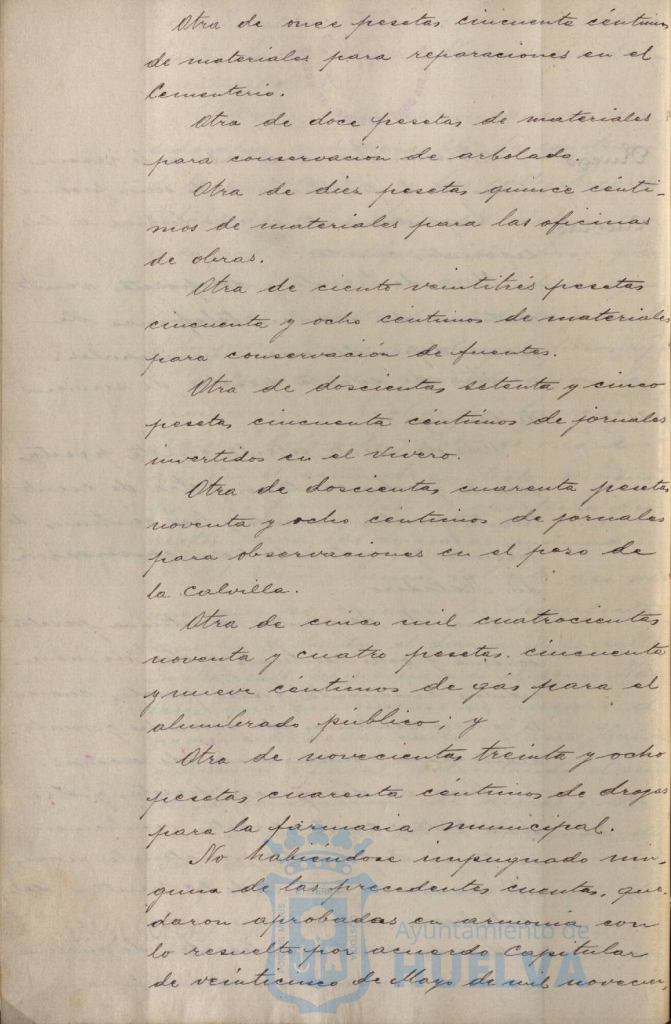 Otra de once pesetas cincuenta céntimos
de materiales para reparaciones en el
Cementerio.
Otra de doce pesetas de materiales
para conservación de arbolado.
Otra de diez pesetas quince cénti-
mos de materiales para las oficinas
de obras.
Otra de ciento veintitrés pesetas
cincuenta y ocho céntimos de materiales
para conservación de fuentes.
Otra de doscientas setenta y cinco
pesetas cincuenta céntimos de jornales
invertidos en el Vivero.
Otra de doscientas cuarenta pesetas
noventa y ocho céntimos de jornales
para observaciones en el pozo de
la Calvilla.
Otra de cinco mil cuatrocientas
noventa y cuatro pesetas cincuenta
y nueve céntimos de gás para el
alumbrado público; y
Otra de novecientas treinta y ocho
pesetas cuarenta céntimos de drogas
para la fármacia municipal.
No habiéndose impugnado nin-
guna de las precedentes cuentas, que-
daron aprobadas en armonía con
lo resuelto por acuerdo Capitular
de veinticinco de Mayo de mil novecien,
Ayuntamiento de
HUELVA